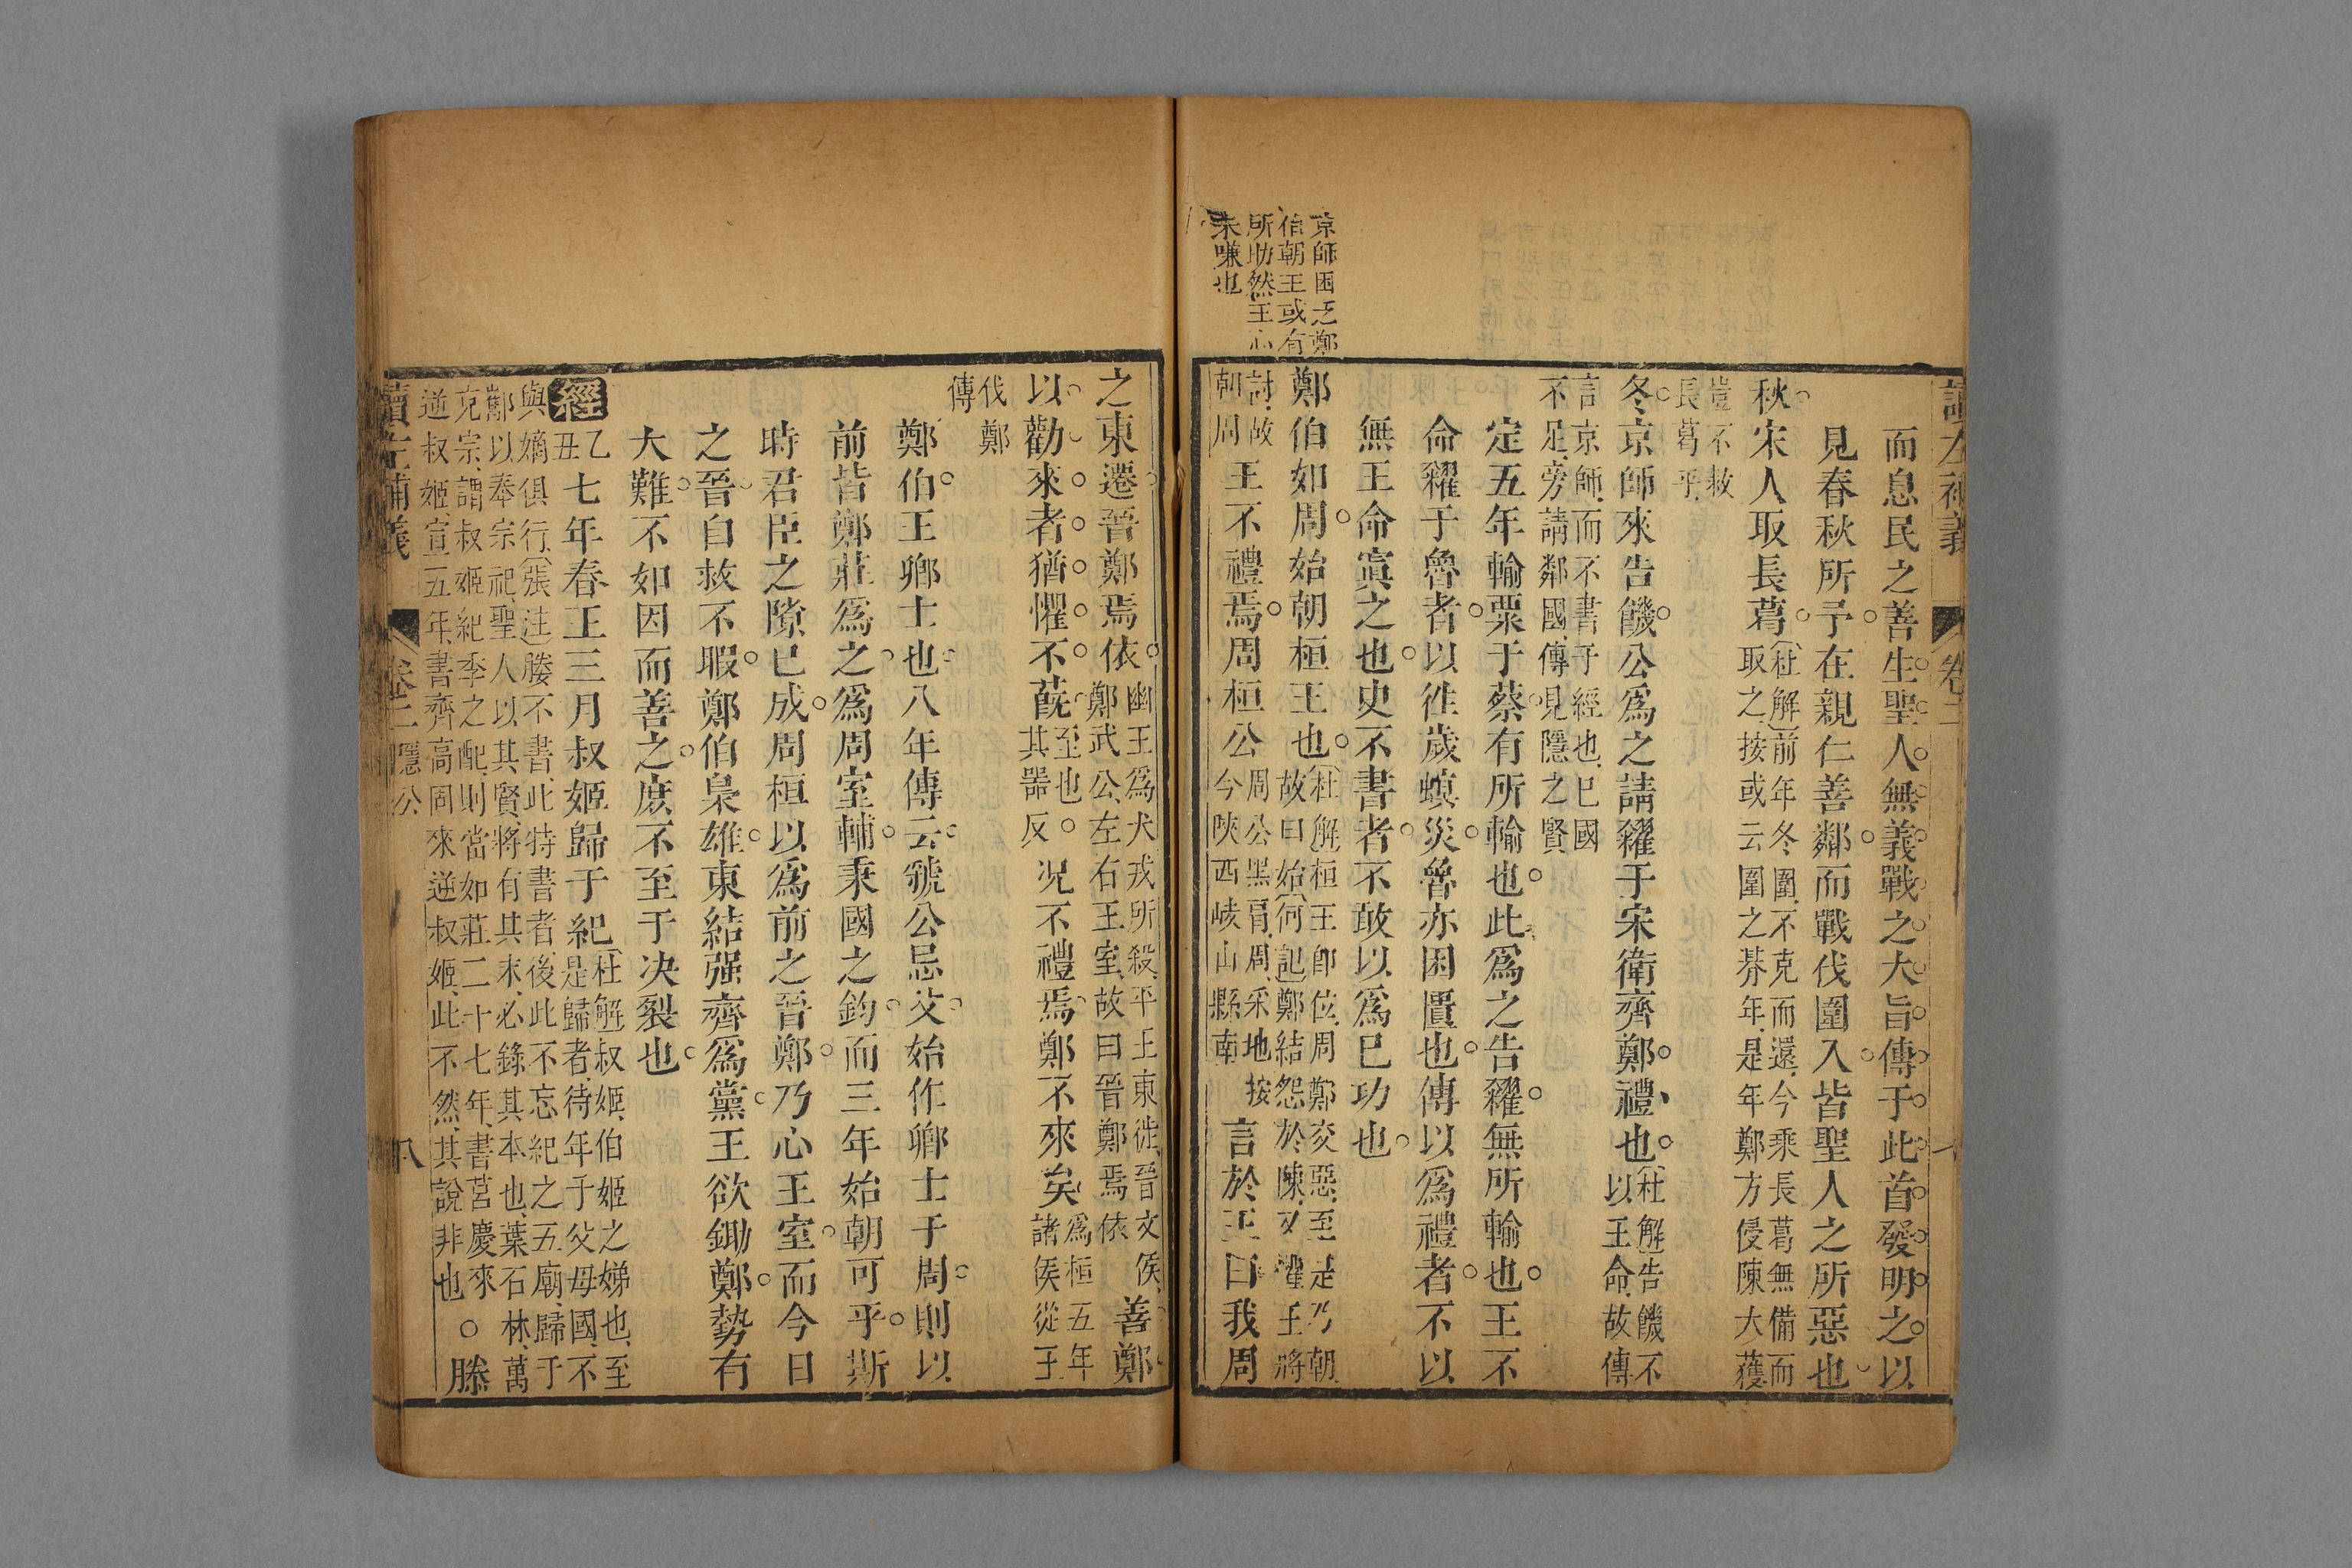 讀左補義 卷二
而息民之善生聖人無義戰之大旨傳于此首發明之以
見春秋所予在親仁善鄰而戰伐圍入皆聖人之所惡也
秋宋人取長葛(杜解)前年冬圍不克而還今乘長葛無備而
取之按或云圍之朞年是年鄭方侵陳大獲
豈不救
長葛乎
冬京師來告饑公爲之請糴于宋衛齊鄭禮也(杜解)告饑不
以王命故傳
言京師而不書于經也已國
不足旁請鄰國傳見隱之賢
定五年輸粟于蔡有所輸也此爲之告糴無所輸也王不
命糴于魯者以徃歲螟災魯亦困匱也傳以爲禮者不以
無王命寘之也史不書者不敢以爲已功也
京師困乏鄭
伯朝王或有
所助然王心
未嗛也
鄭伯如周始朝桓王也(杜解)桓王卽位周鄭交惡至是乃朝
故曰始(何記)鄭結怨於陳又懼王將
討故
朝周
王不禮焉周桓公周公黑肩周采地按
今陜西岐山縣南
言於王曰我周
之東遷晉鄭焉依幽王爲犬戎所殺平王東徙晉文侯
鄭武公左右王室故曰晉鄭焉依
善鄭
以勸來者猶懼不蔇至也
其器反
况不禮焉鄭不來矣爲桓五年
諸侯從王
伐鄭
傳
鄭伯王卿士也八年傳云虢公忌父始作卿士于周則以
前皆鄭莊爲之爲周室輔秉國之鈞而三年始朝可乎斯
時君臣之隙已成周桓以爲前之晉鄭乃心王室而今日
之晉自救不暇鄭伯梟雄東結强齊爲黨王欲鋤鄭勢有
大難不如因而善之庶不至于决裂也
經乙
丑
七年春王三月叔姬歸于紀(杜解)叔姬伯姬之娣也至
是歸者待年于父母國不
與嫡俱行(張注)媵不書此特書者後此不忘紀之五廟歸于
酅以奉宗祀聖人以其賢將有其末必錄其本也葉石林萬
充宗謂叔姬紀季之配則當如莊二十七年書莒慶來
逆叔姬宣五年書齊高固來逆叔姬此不然其說非也○滕
讀左補義 卷二 隱公 八